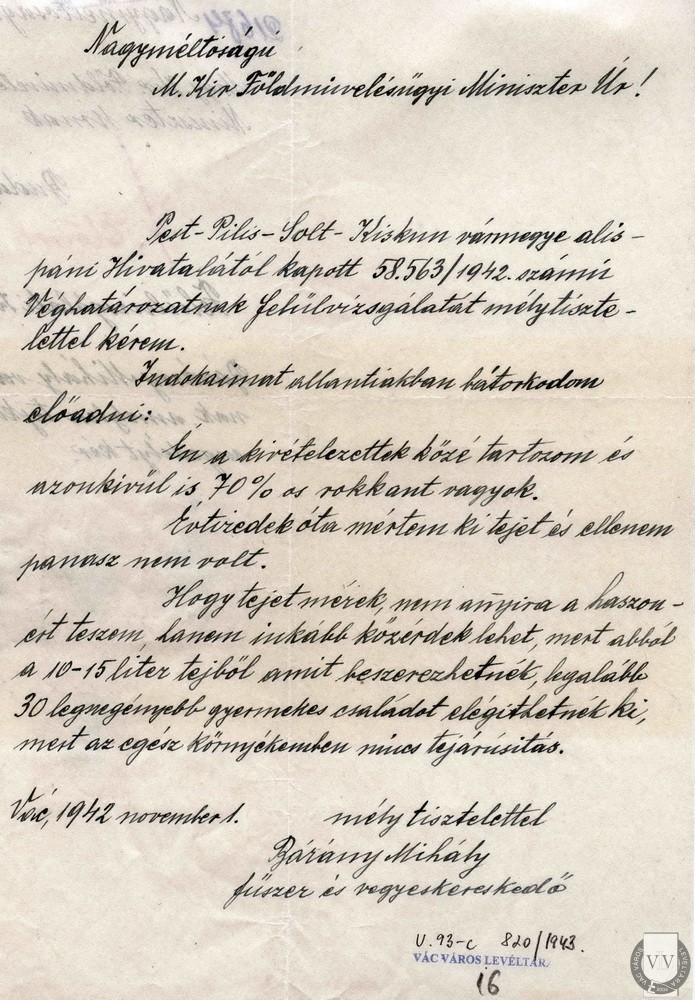 Nagyméltóságú
M. Kir Földmivelésügyi Miniszter Úr!
Pest-Pilis-Solt-Kiskun vármegye alis-
páni Hivatalától kapott 58.563/1942. számú
Véghatározatnak felülvizsgálatát mélytiszte-
lettel kérem.
Indokaimat allantiakban bátorkodom
előadni:
Én a kivételezettek közé tartozom és
azonkivül is 70% os rokkant vagyok.
Évtizedek óta mértem ki tejet és ellenem
panasz nem volt.
Hogy tejet mérek, nem anyira a haszon-
ért teszem, hanem inkább közérdek lehet, mert abból
a 10-15 liter tejből amit beszerezhetnék, legalább
30 legszegényebb gyermekes családot elégithetnék ki,
mert az egész környékemben nincs tejárúsitás.
Vác, 1942 november 1.
mély tisztelettel
Bárány Mihály
fűszer és vegyeskereskedő
V. 93-c 820/1943.
VÁC VÁROS LEVÉLTÁRA
16
VÁC VÁROS LEVÉLTÁRA